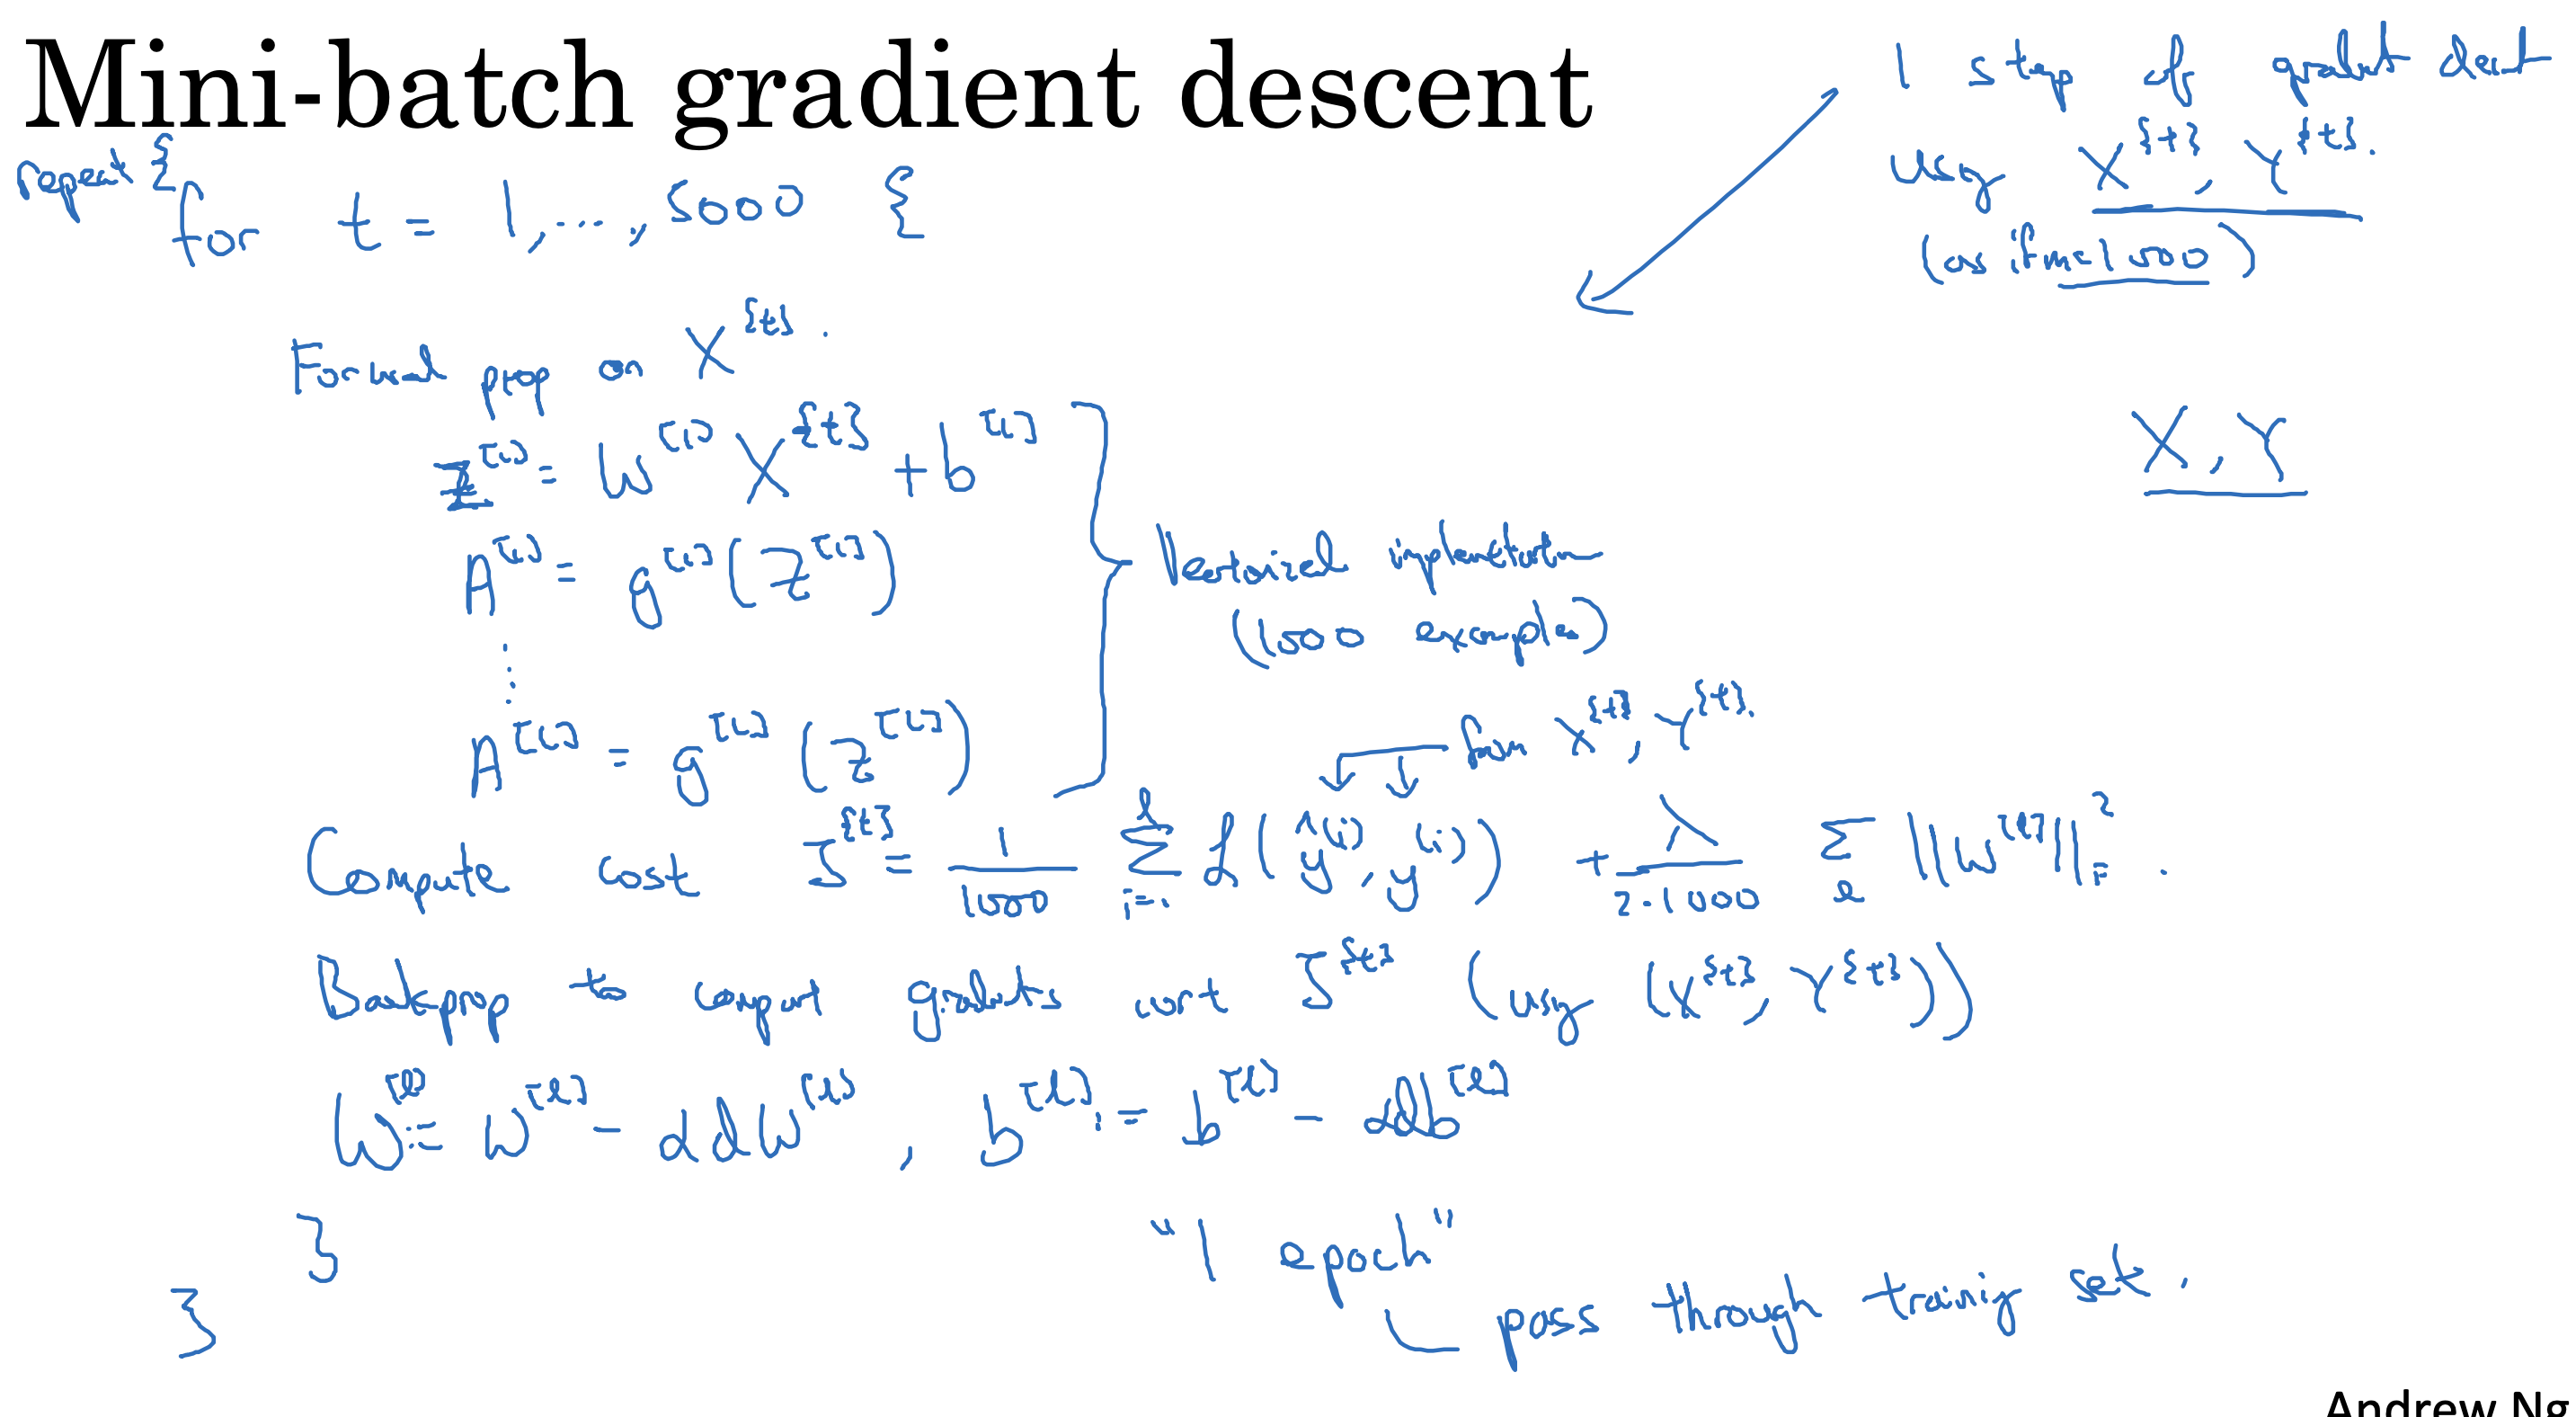 Mini-batch gradient descent
1 step of gradient descent
using X^{t}, Y^{t}.
(as if m=1000)
repeat {
for t = 1,..., 5000 {
Forward prop on X^{t}.
Z^[1] = W^[1] X^{t} + b^[1]
A^[1] = g^[1](Z^[1])
⋮
A^[L] = g^[L](Z^[L])
Vectorized implementation
(1000 examples)
X, Y
from X^{t}, Y^{t}.
Compute cost J^{t} = 1/1000 Σ_{i=1}^{l} L(ŷ^(i), y^(i)) + λ/(2·1000) Σ_l ||W^[l]||_F^2.
Backprop to compute gradients wrt J^{t} (using (X^{t}, Y^{t}))
W^[l] := W^[l] - αdW^[l], b^[l] := b^[l] - αdb^[l]
}
}
"1 epoch"
pass through training set.
Andrew Ng